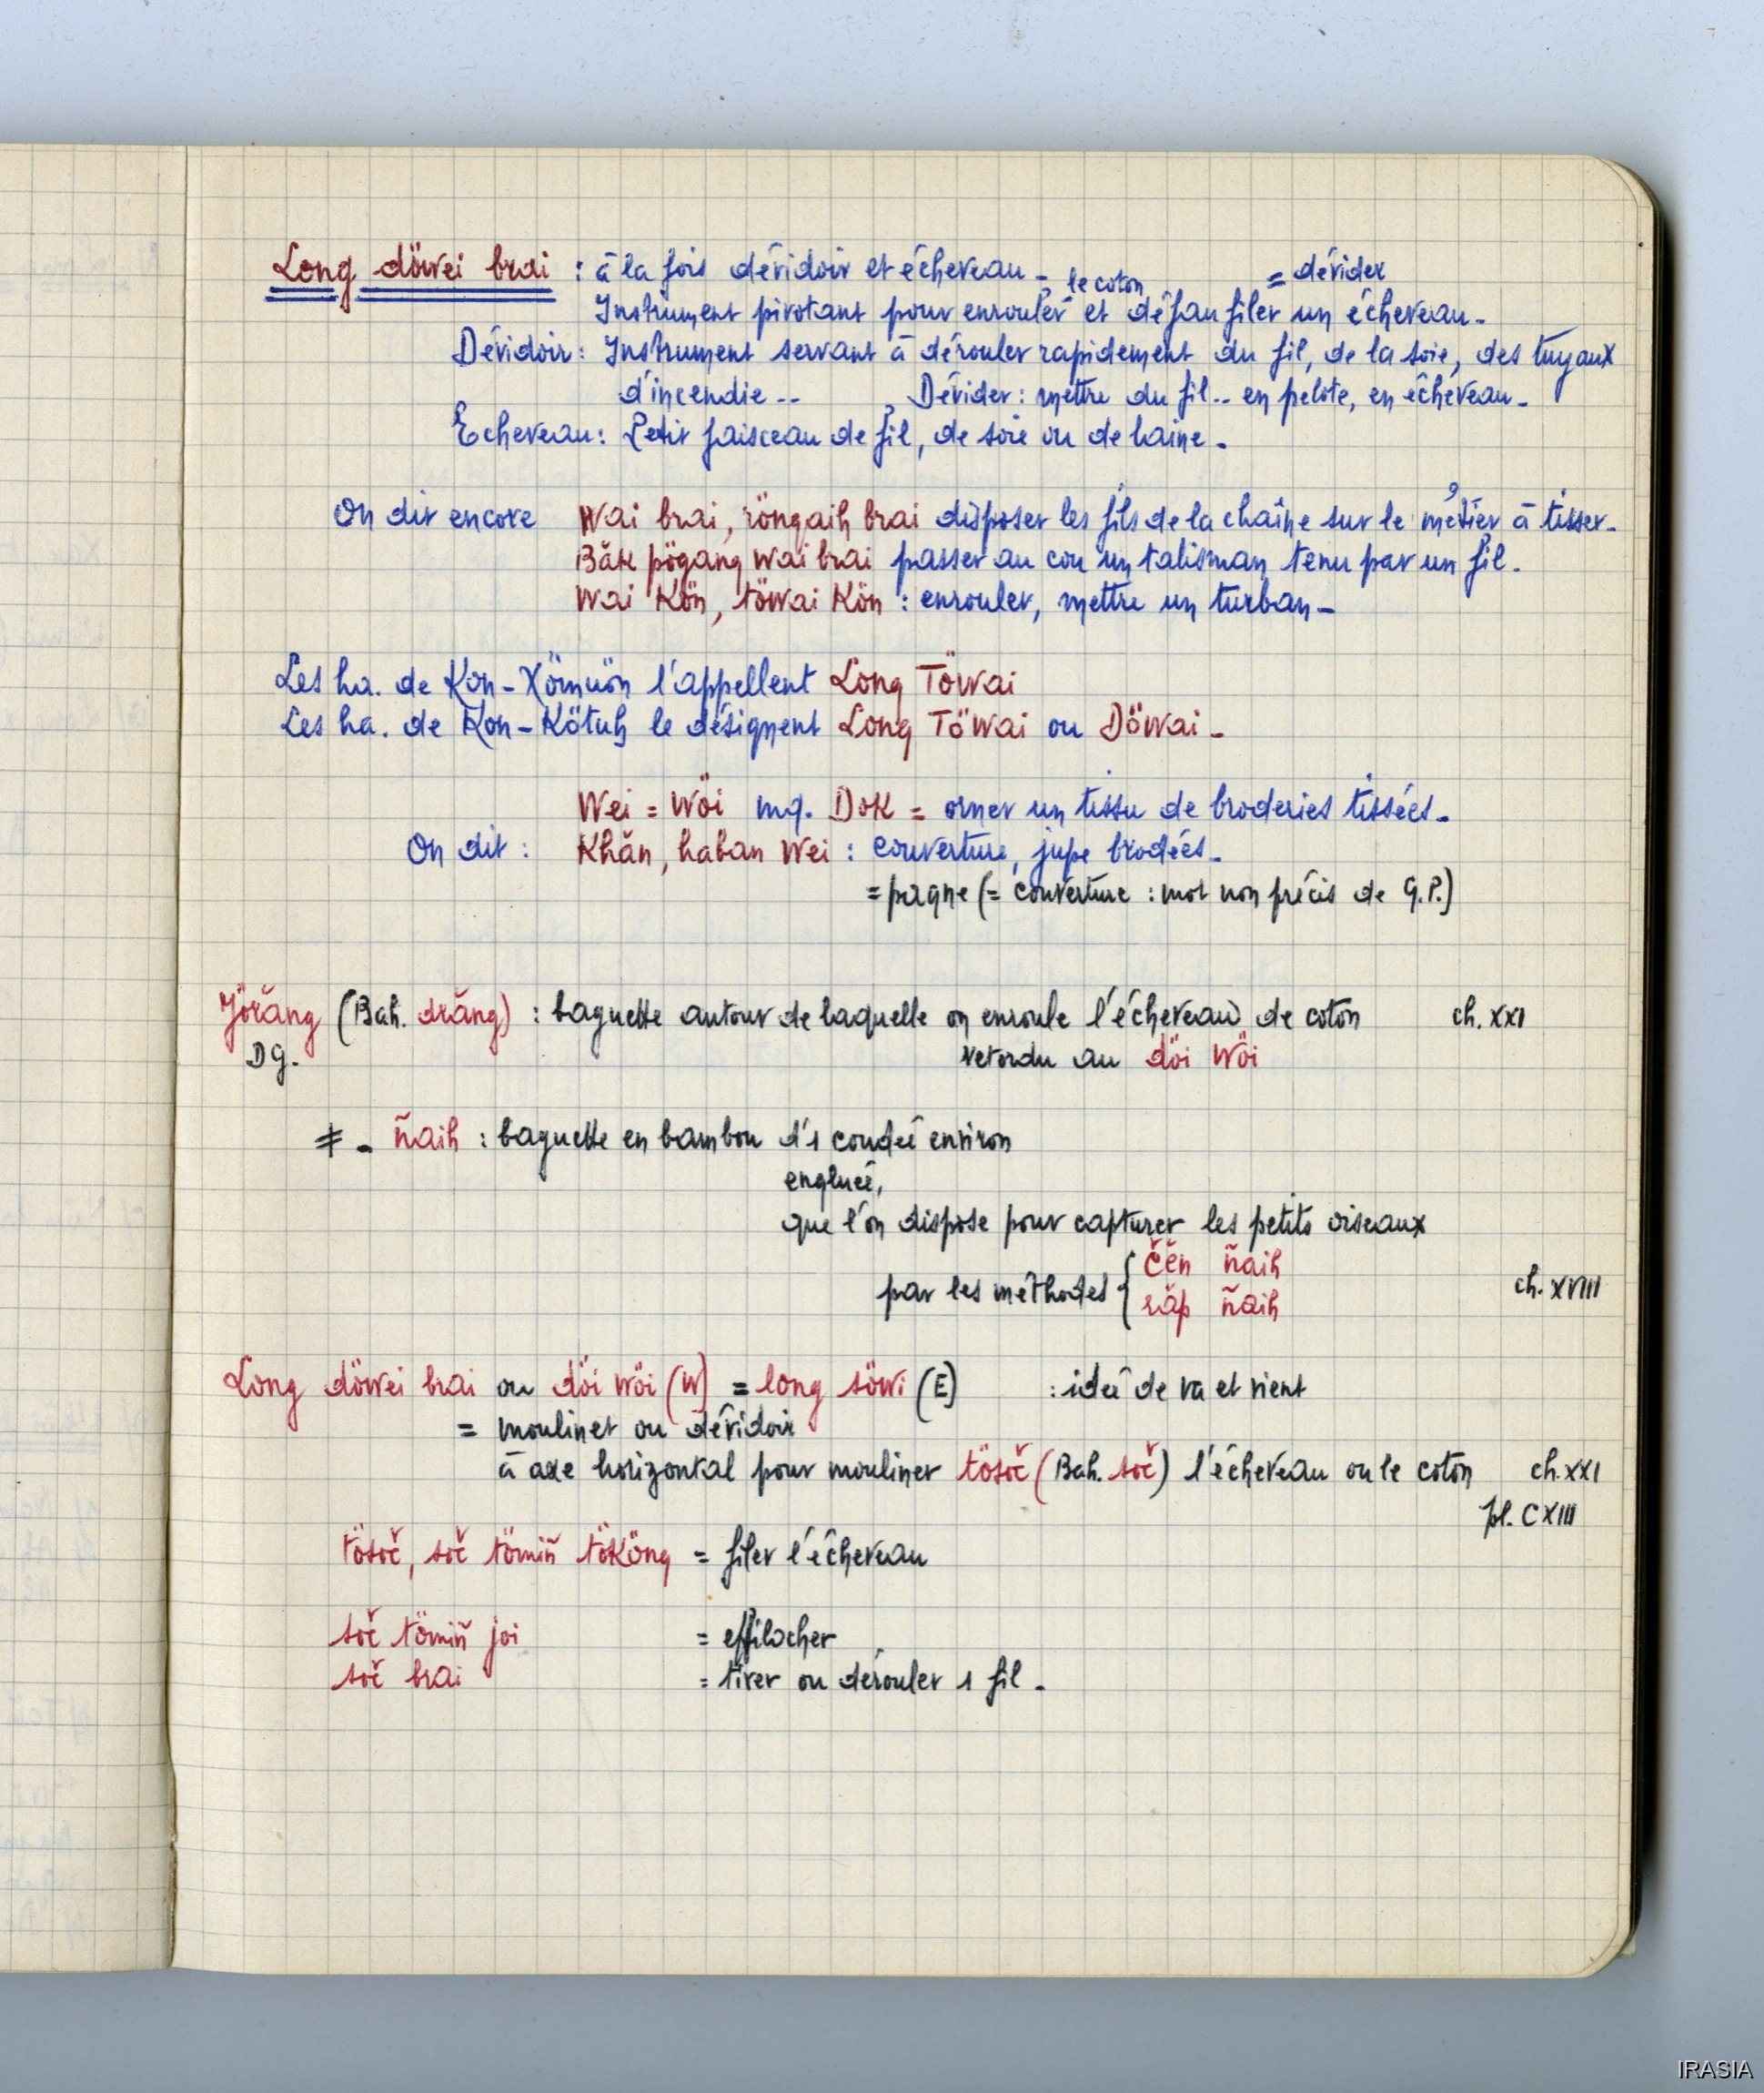 Long döwei brai : à la fois dévidoir et écheveau -
le coton = dévider
Instrument pivotant pour enrouler et défaufiler un écheveau -
Dévidoir : Instrument servant à dérouler rapidement du fil, de la soie, des tuyaux
d'incendie -- Dévider : mettre du fil .. en pelote, en écheveau -
Echeveau : Petit faisceau de fil, de soie ou de laine -
On dit encore Wai brai, röngaih brai disposer les fils de la chaîne sur le métier à tisser -
Băk pögang wai brai passer au cou un talisman tenu par un fil.
Wai Kön, töwai Kön : enrouler, mettre un turban -
Les ha. de Kon-Xömuön l'appellent Long Töwai
Les ha. de Kon-Kötuh le désignent Long Töwai ou Döwai -
Wei = Wöi mq. Dok = orner un tissu de broderies tissées -
On dit : Khăn, haban Wei : couverture, jupe brodées -
= pagne (= couverture : mot non précis de G.P.)
Jörăng (Bah. drăng) : baguette autour de laquelle on enroule l'écheveau de coton ch. XXI
DG. retordu au döi wöi
≠ - ñaih : baguette en bambou d'1 coudée environ
engluée,
que l'on dispose pour capturer les petits oiseaux
par les méthodes { čĕn ñaih
răp ñaih ch. XVIII
Long döwei brai ou döi wöi (W) = long söwi (E) : idée de va et vient
= moulinet ou dévidoir
à axe horizontal pour mouliner tösoč (Bah. soč) l'écheveau ou le coton ch. XXI
pl. CXIII
tösoč, soč tömiñ tököng = filer l'écheveau
soč tömiñ joi = effilocher
soč brai = tirer ou dérouler 1 fil -
IRASIA